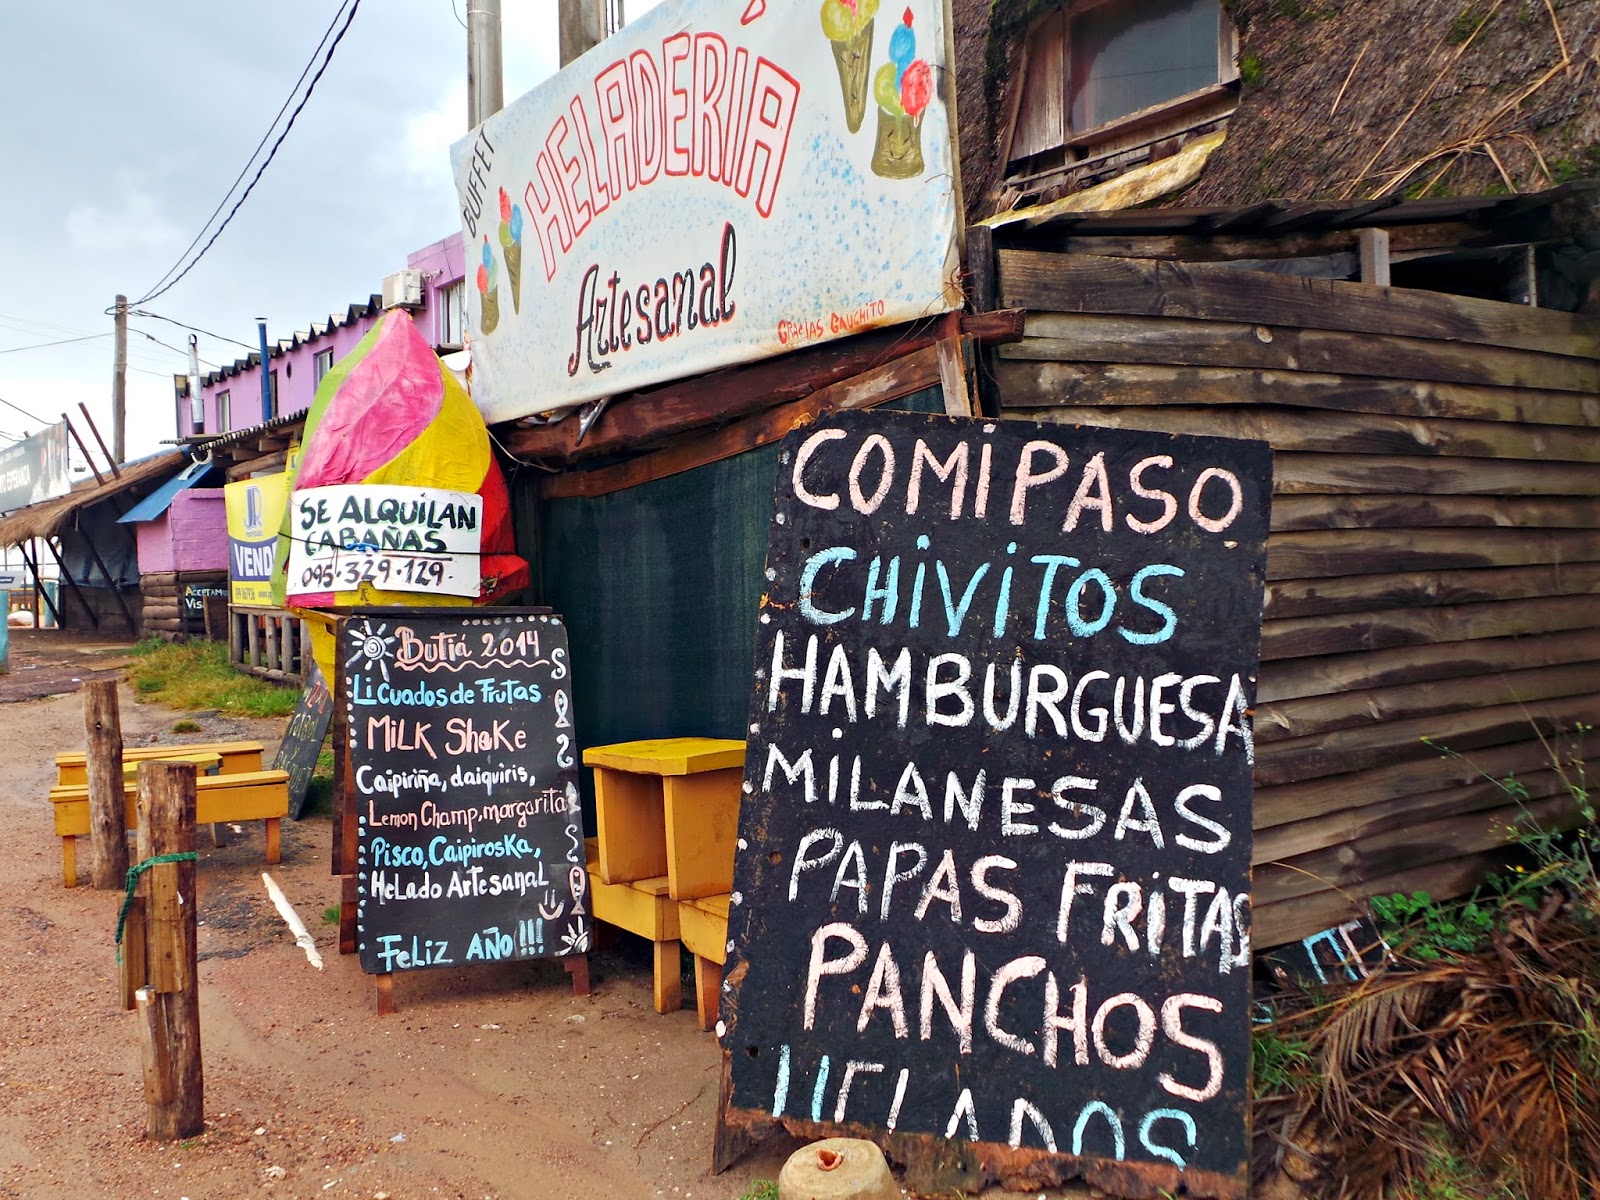 BUFFET
HELADERÍA
Artesanal
GRACIAS GAUCHITO
SE ALQUILAN
CABAÑAS
095.329.129.
VEND
ACEPTAM
VIS
Butiá 2014
Licuados de Frutas
MiLK Shake
Caipiriña, daiquiris,
Lemon Champ, margarita
Pisco, Caipiroska,
HeLado ArtesanaL
FeLiz AÑO!!!
COMiPASO
CHiViTOS
HAMBURGUESA
MiLANESAS
PAPAS FRiTAS
PANCHOS
HELADOS